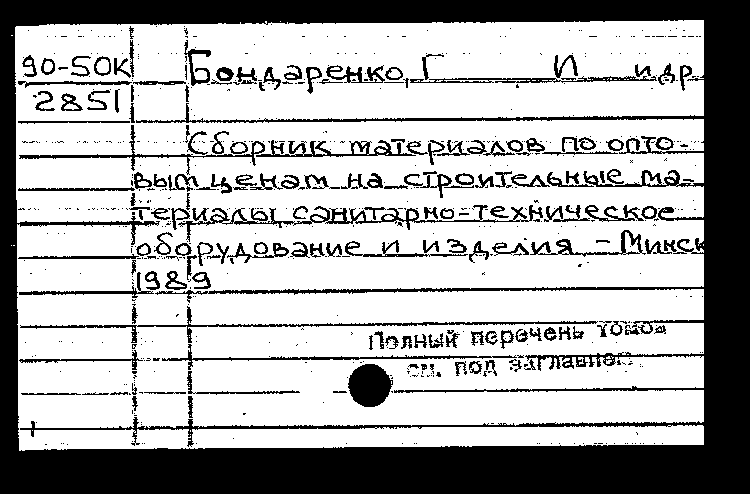 90-50К Бондаренко, Г И и др
2851
Сборник материалов по опто-
вым ценам на строительные ма-
териалы, санитарно-техническое
оборудование и изделия - Минск
1989
Полный перечень томов
см. под заглавием